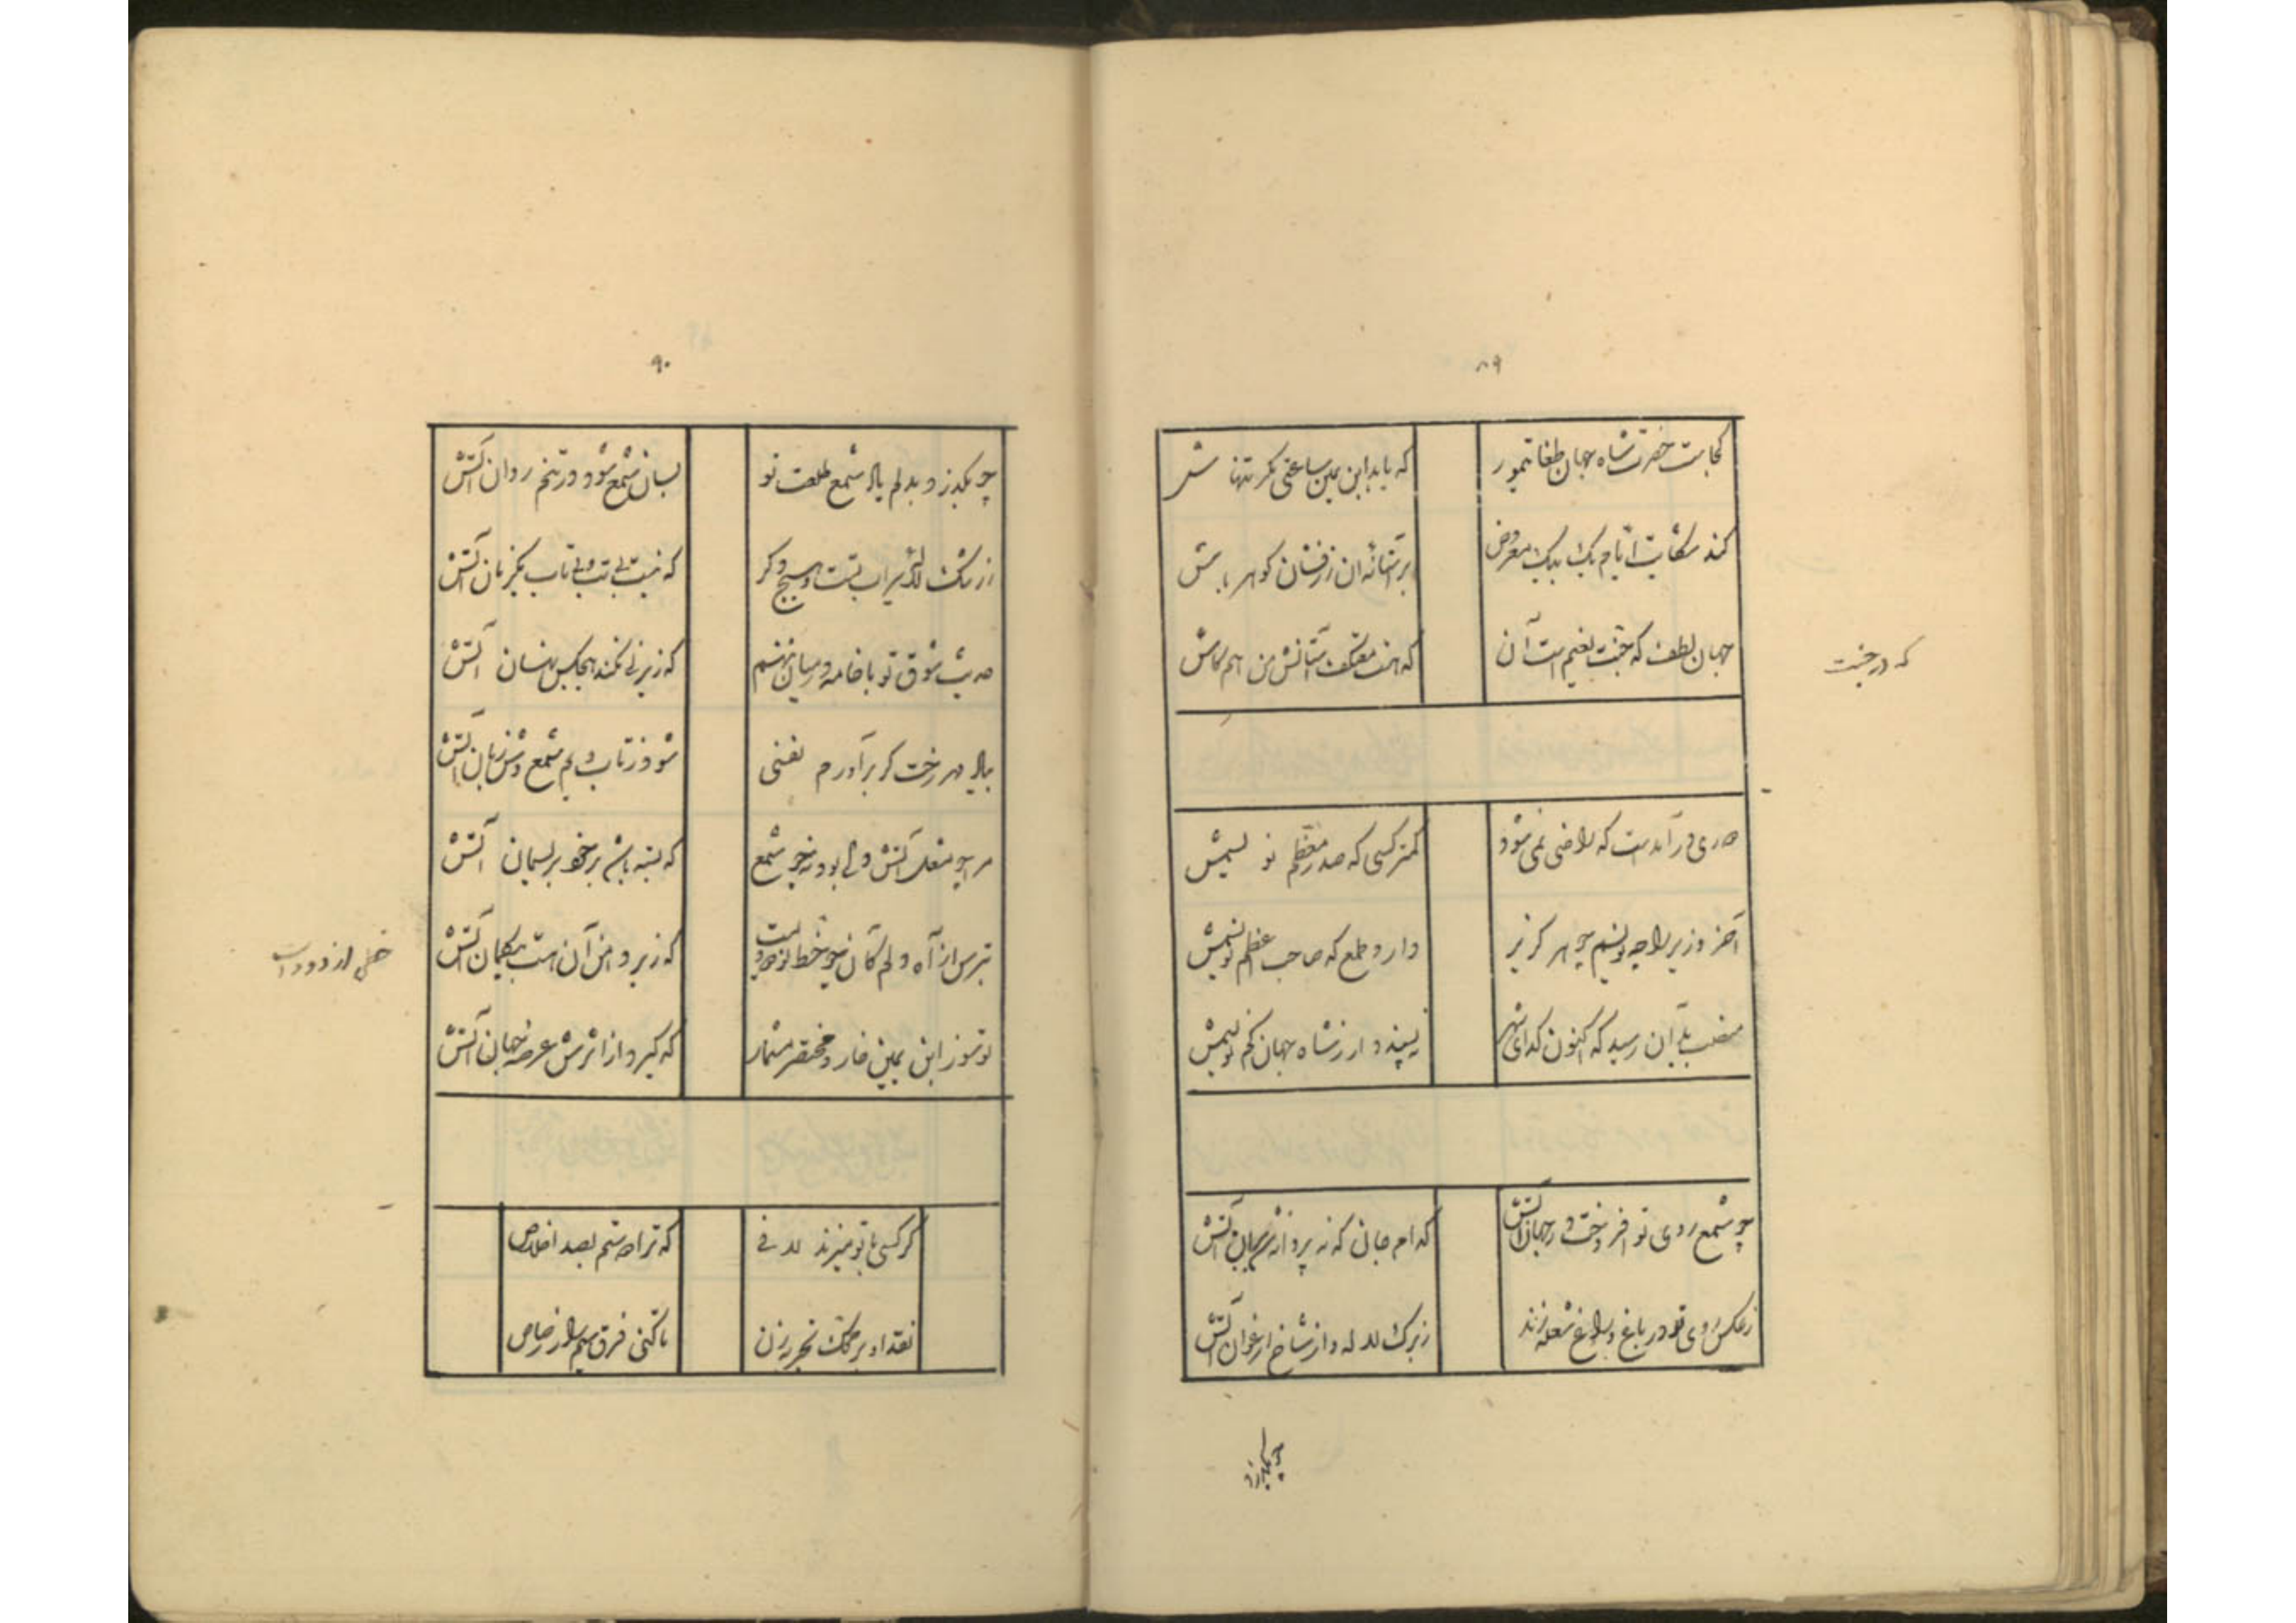 ۸۹
کجاست حضرت شاه جهان طغا تیمور
که یابد ابن یمین ساعتی مکر تنها ش
کند شکایت ایام یک بیک معروض
بر آستانه آن زرفشان کوهر باش
جهان لطف که جنت نعیم است آن
که هست معتکف آستانش من هم کاش
که در جنت
صدری در آمدست که راضی نمی شود
کمتر کسی که صدر معظم نویسمش
آخر وزیر را چه نویسم چو هر کزیر
دارد طمع که صاحب اعظم نویسمش
منصب بدان رسید که اکنون کدای شهر
نپسندد ار ز شاه جهان کم نویسمش
چو شمع روی تو افروخت در جهان آتش
کدام جان که نه پروانه شد بر آن آتش
ز عکس روی تو در باغ و راغ شعله زند
ز برک لاله و از شاخ ارغوان آتش
چو بکذرد
۹۰
چو بکذرد بدلم یاد شمع طلعت تو
بسان شمع شود در تنم روان آتش
ز رشک لاله سیراب تست و هیچ دکر
که نیست بی تب و بی تاب یکزمان آتش
حدیث شوق تو با خامه در میان ننهم
که زیر نی نکند هیچکس نهان آتش
بیاد مهر رخت کر برآورم نفسی
شود ز تاب دلم شمع وش زبان آتش
مرا چو مشعله آتش ولی بود نه چو شمع
که بسته باشم بر خود بریسمان آتش
بترس از آه دلم کان نه چو خط است
که زیر دامن آن است بیکمان آتش
خطی از دود است
تو سوز ابن یمین خار و مختصر مشمار
که کیرد از اثرش عرصه جهان آتش
کر کسی با تو میزند لافی
که ترا دوستم بصد اخلاص
نقد او بر محک تجربه زن
تا کنی فرق سیم را ز رصاص